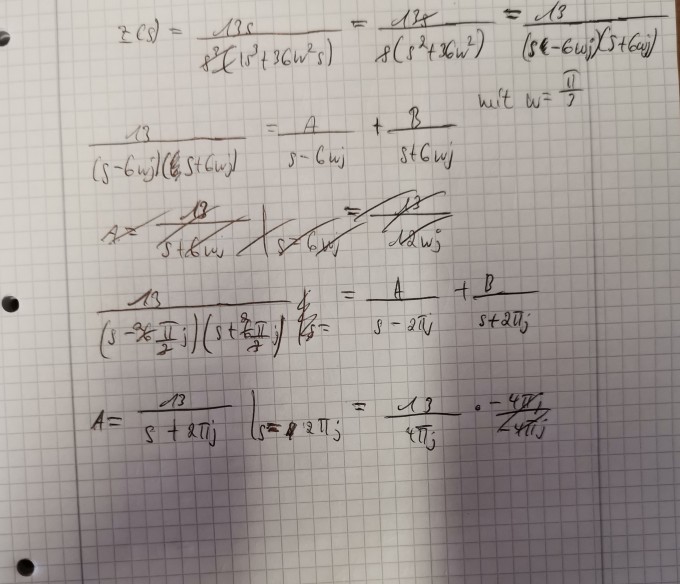 z(s) = 13s / (s³ + 36w²s) = 13s / s(s² + 36w²) = 13 / (s - 6wj)(s + 6wj)
mit w = π/3
13 / (s - 6wj)(s + 6wj) = A / s - 6wj + B / s + 6wj
A = 13 / s + 6wj | s = 6wj = 13 / 12wj
13 / (s - 6 π/3 j)(s + 6 π/3 j) | s = = A / s - 2πj + B / s + 2πj
A = 13 / s + 2πj | s = 2πj = 13 / 4πj · -4πj / -4πj